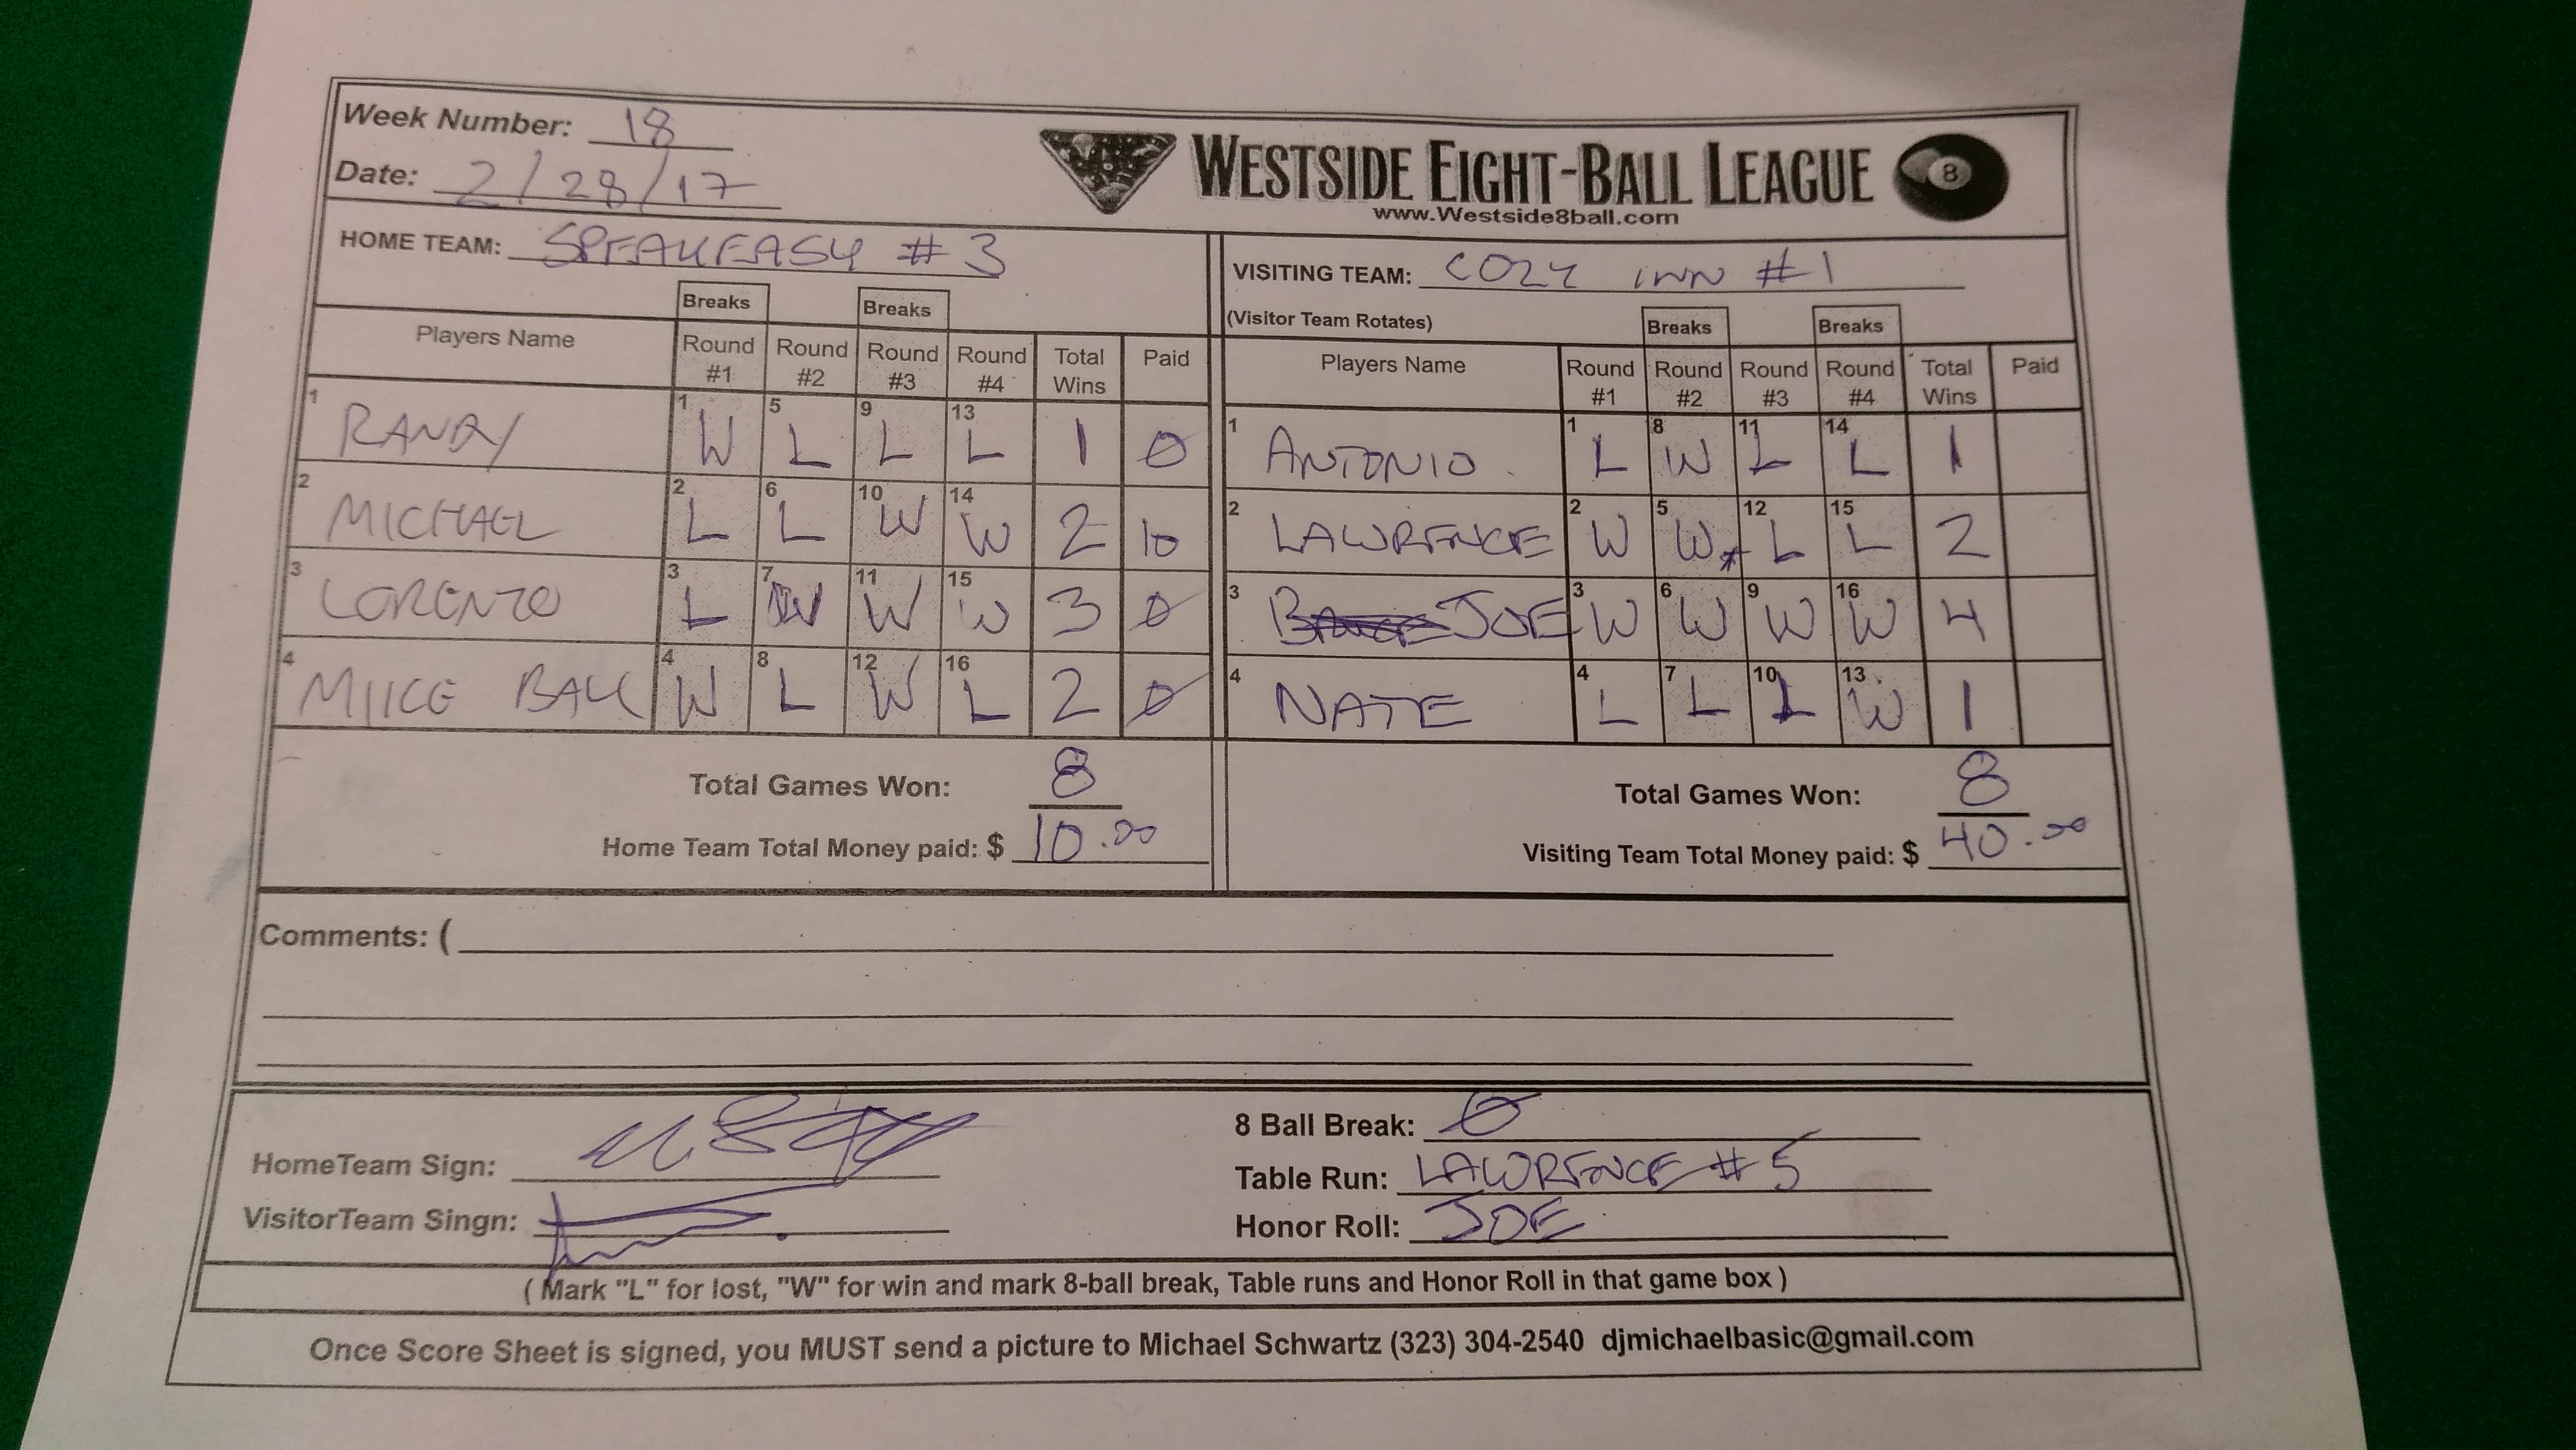 Week Number: 18
Date: 2/28/17
WESTSIDE EIGHT-BALL LEAGUE 8
www.Westside8ball.com
HOME TEAM: SPEAKEASY #3
VISITING TEAM: COZY INN #1
(Visitor Team Rotates)
Breaks Breaks Breaks Breaks
Players Name Round #1 Round #2 Round #3 Round #4 Total Wins Paid Players Name Round #1 Round #2 Round #3 Round #4 Total Wins Paid
1 RANDY 1 W 5 L 9 L 13 L 1 0 1 ANTONIO 1 L 8 W 11 L 14 L 1
2 MICHAEL 2 L 6 L 10 W 14 W 2 10 2 LAWRENCE 2 W 5 W* 12 L 15 L 2
3 LORENZO 3 L 7 W 11 W 15 W 3 0 3 JOE 3 W 6 W 9 W 16 W 4
4 MIKE BALL 4 W 8 L 12 W 16 L 2 0 4 NATE 4 L 7 L 10 L 13 W 1
Total Games Won: 8 Total Games Won: 8
Home Team Total Money paid: $ 10.00 Visiting Team Total Money paid: $ 40.00
Comments: (
HomeTeam Sign:
VisitorTeam Singn:
8 Ball Break: 0
Table Run: LAWRENCE #5
Honor Roll: JOE
( Mark "L" for lost, "W" for win and mark 8-ball break, Table runs and Honor Roll in that game box )
Once Score Sheet is signed, you MUST send a picture to Michael Schwartz (323) 304-2540 djmichaelbasic@gmail.com